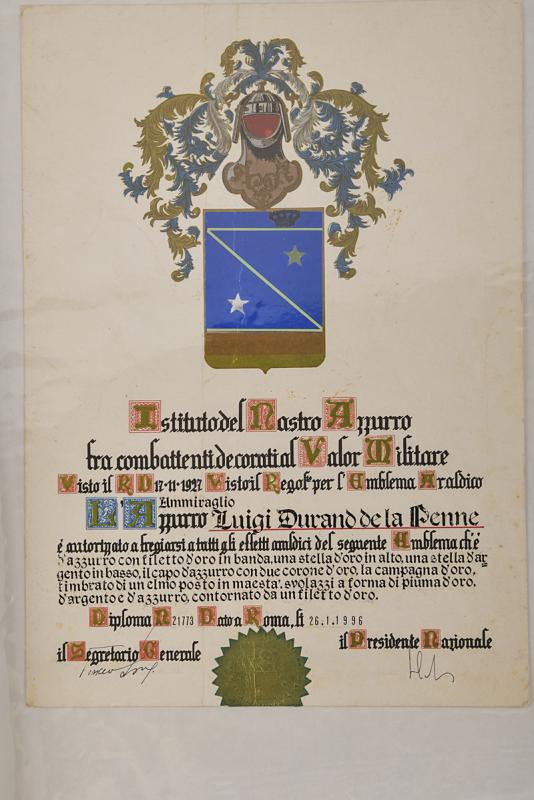 Istituto del Nastro Azzurro
fra combattenti decorati al Valor Militare
Visto il R D 17-11-1927 Visto il Regol° per l' Emblema Araldico
Ammiraglio
L'Azzurro Luigi Durand de la Penne
è autorizzato a fregiarsi a tutti gli effetti araldici del seguente Emblema ch'è
d'azzurro con filetto d'oro in banda, una stella d'oro in alto, una stella d'ar=
gento in basso, il capo d'azzurro con due corone d'oro, la campagna d'oro,
timbrato di un elmo posto in maestà, svolazzi a forma di piuma d'oro,
d'argento e d'azzurro, contornato da un filetto d'oro.
Diploma N 21773 Dato a Roma, li 26.1.1996
il Segretario Generale il Presidente Nazionale